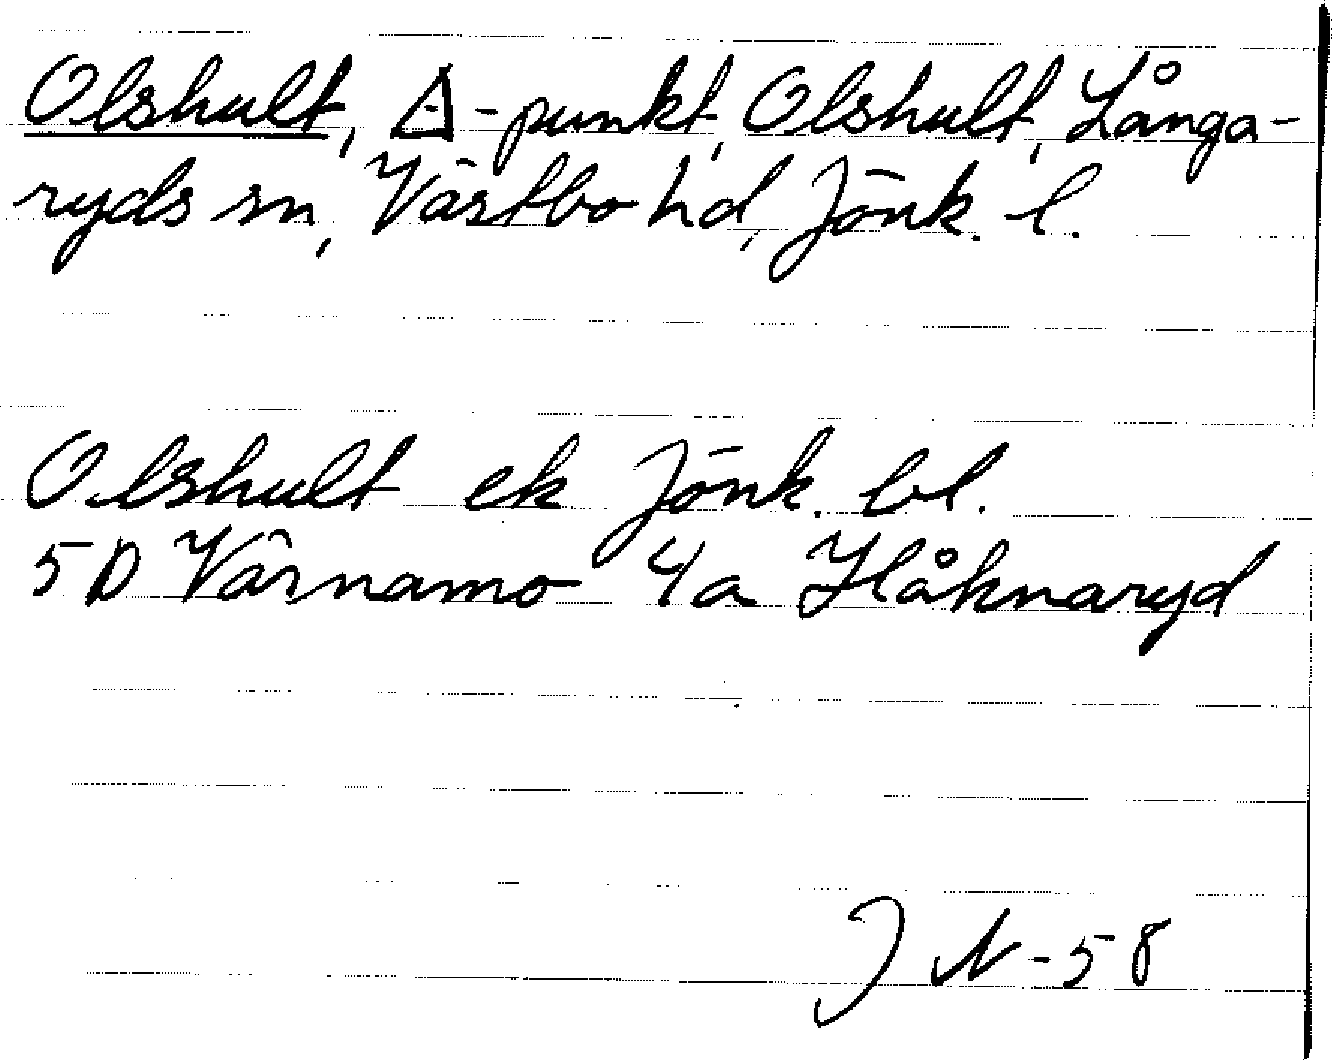 Olshult, △-punkt, Olshult, Långa-
ryds sn, Västbo hd, Jönk. l.
Olshult ek Jönk. bl.
5D Värnamo 4a Håknaryd
J N-58